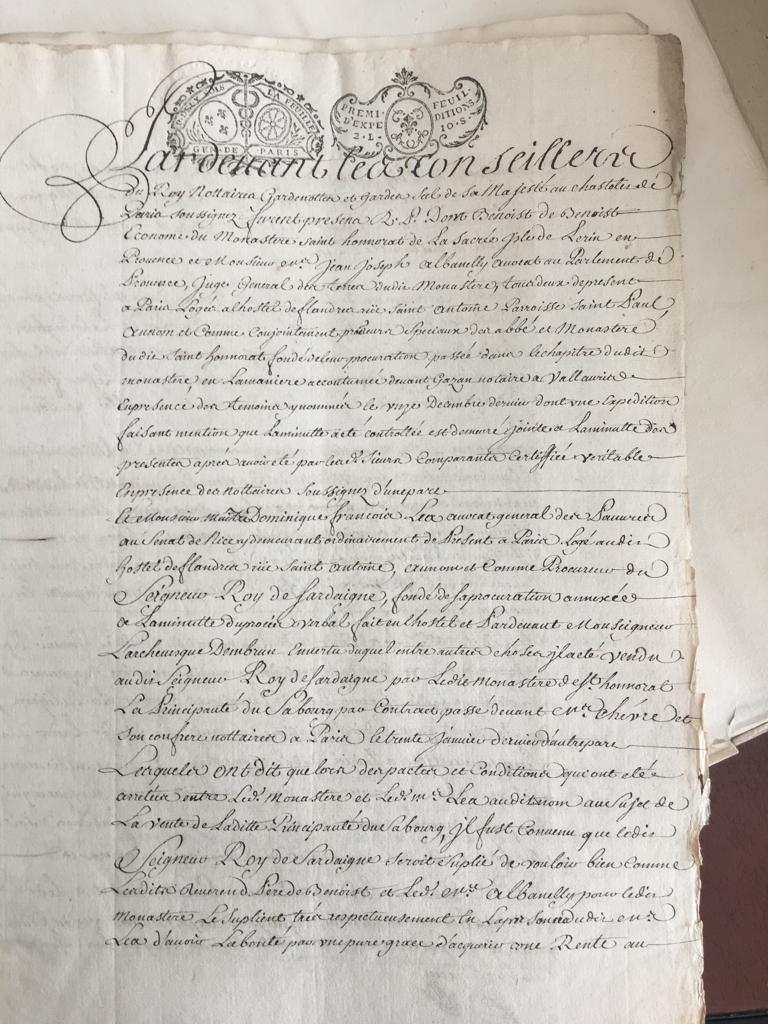 DOUZE SOLS LA FEUILLE
GEN. DE PARIS
PREMI. FEUIL.
D'EXPE DITIONS
2. L. 10. S.
Pardevant les Conseillers
du Roy Nottaires Gardenottes et Gardes Scel de Sa Majesté au chastelet de
Paris soussignez furent presens R. P. Dom Benoist de Benoist
Econome du Monastere saint honnorat de La Sacrée Isle de Lerin en
Provence et Monsieur Me. Jean Joseph Albanelly avocat au Parlement de
Provence, Juge General des terres dudit Monastere, tous deux depresent
a Paris Logés a l'hostel de flandres rüe Saint Antoine Parroisse Saint Paul
au nom et Comme Conjointement procureurs Speciaux des abbé et Monastere
dudit Saint honnorat, fondé de leur procuration passée dans le chapitre dudit
monastere, en La maniere accoutumée devant Gazan notaire a Vallauris
En presence des temoins y nommés le unze Decembre dernier dont une Expedition
faisant mention que La minutte a eté controllée est demeurée jointe a La minutte des
presentes aprés avoir eté par lesd. Sieurs Comparants Certiffiée veritable
En presence des nottaires Soussignez d'une part
Et Monsieur Maître Dominique françois Lea avocat general des Pauvres
au Senat de Nice y demeurant ordinairement de Present a Paris Logé audit
hostel de flandres rüe Saint Antoine, au nom et Comme Procureur du
Seigneur Roy de Sardaigne, fondé de sa procuration annexée
a La minutte du procés verbal fait en l'hostel et Pardevant Monseigneur
L'archevesque Dembrun En vertu duquel entre autres choses il a eté vendu
audit Seigneur Roy de Sardaigne par Ledit Monastere de St. honnorat
La Principauté du Sabourg par Contract passé devant Me. chévre et
Son confrere nottaires a Paris le trente Janvier dernier d'autre part
Lesquels ont dit que lors des pactes et Conditions qui ont eté
arrêtées entre Led. Monastere et Led. Me. Lea audit nom au Sujet de
La vente de Laditte Principauté du Sabourg, il fust Convenu que ledit
Seigneur Roy de Sardaigne Seroit Suplié de vouloir bien comme
Lesdits Reverend Pere de Benoist et Led. Me. Albanelly pour ledit
monastere Le Suplient trés respectueusement En La personne dudit Me.
Lea d'avoir La bonté par une pure grace d'acquerir une Rente au